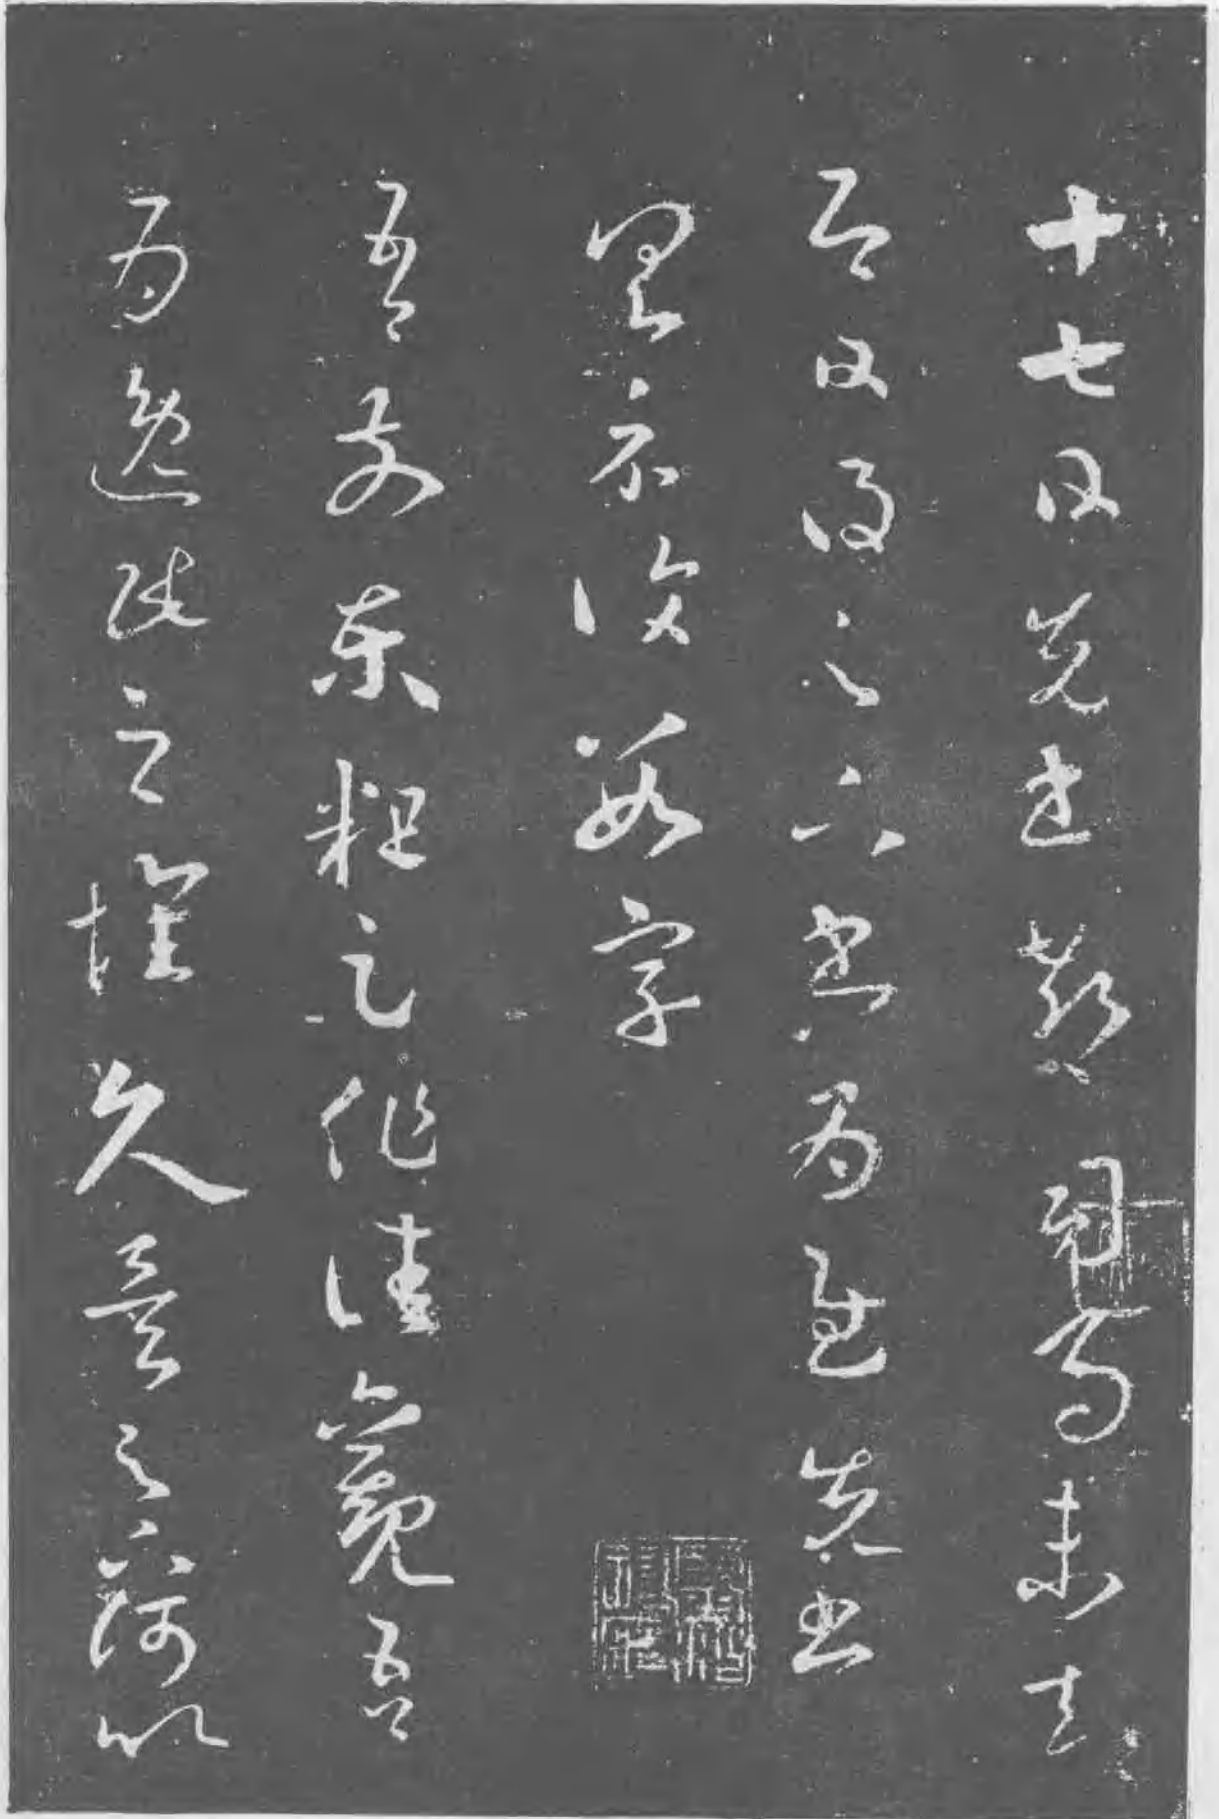 十七日先書郗司馬未去
即日得足下書為慰先書
以具示復數字
吾前東粗足作佳觀吾
為逸民之懷久矣足下何以